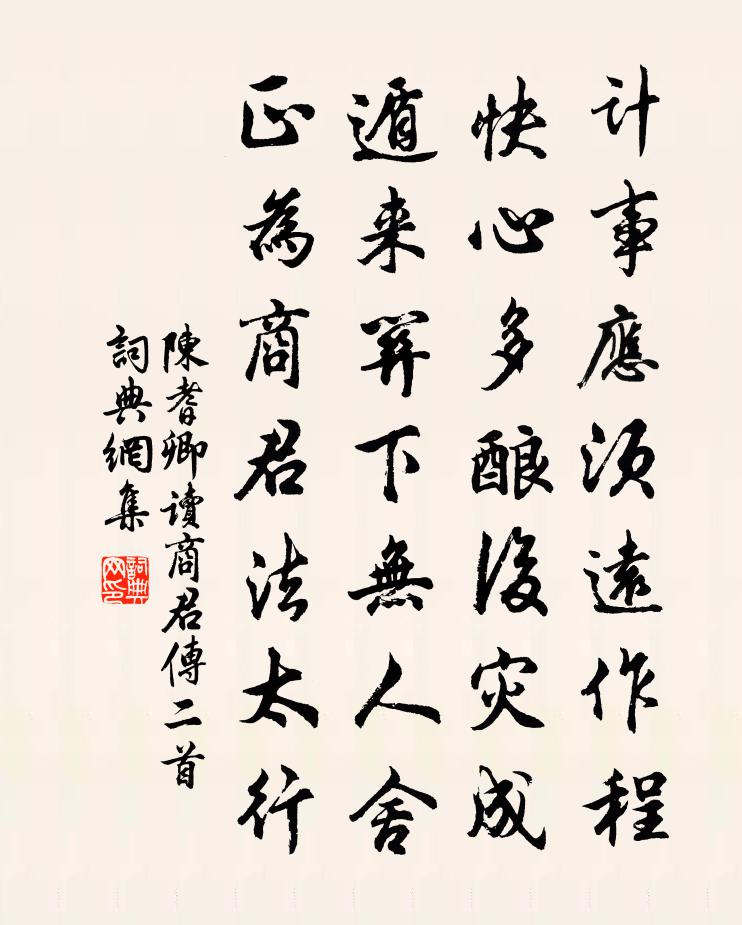 计事應須遠作程
快心多酿後灾成
遁来關下無人舍
正為商君法太行
陳耆卿讀商君傳二首
詞典網集
詞典网印